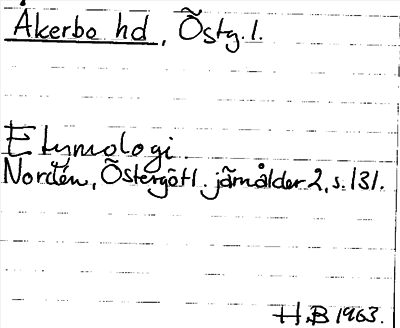 Åkerbo hd, Östg. l.
Etymologi
Nordén, Östergötl. järnålder 2, s. 131.
H.B 1963.